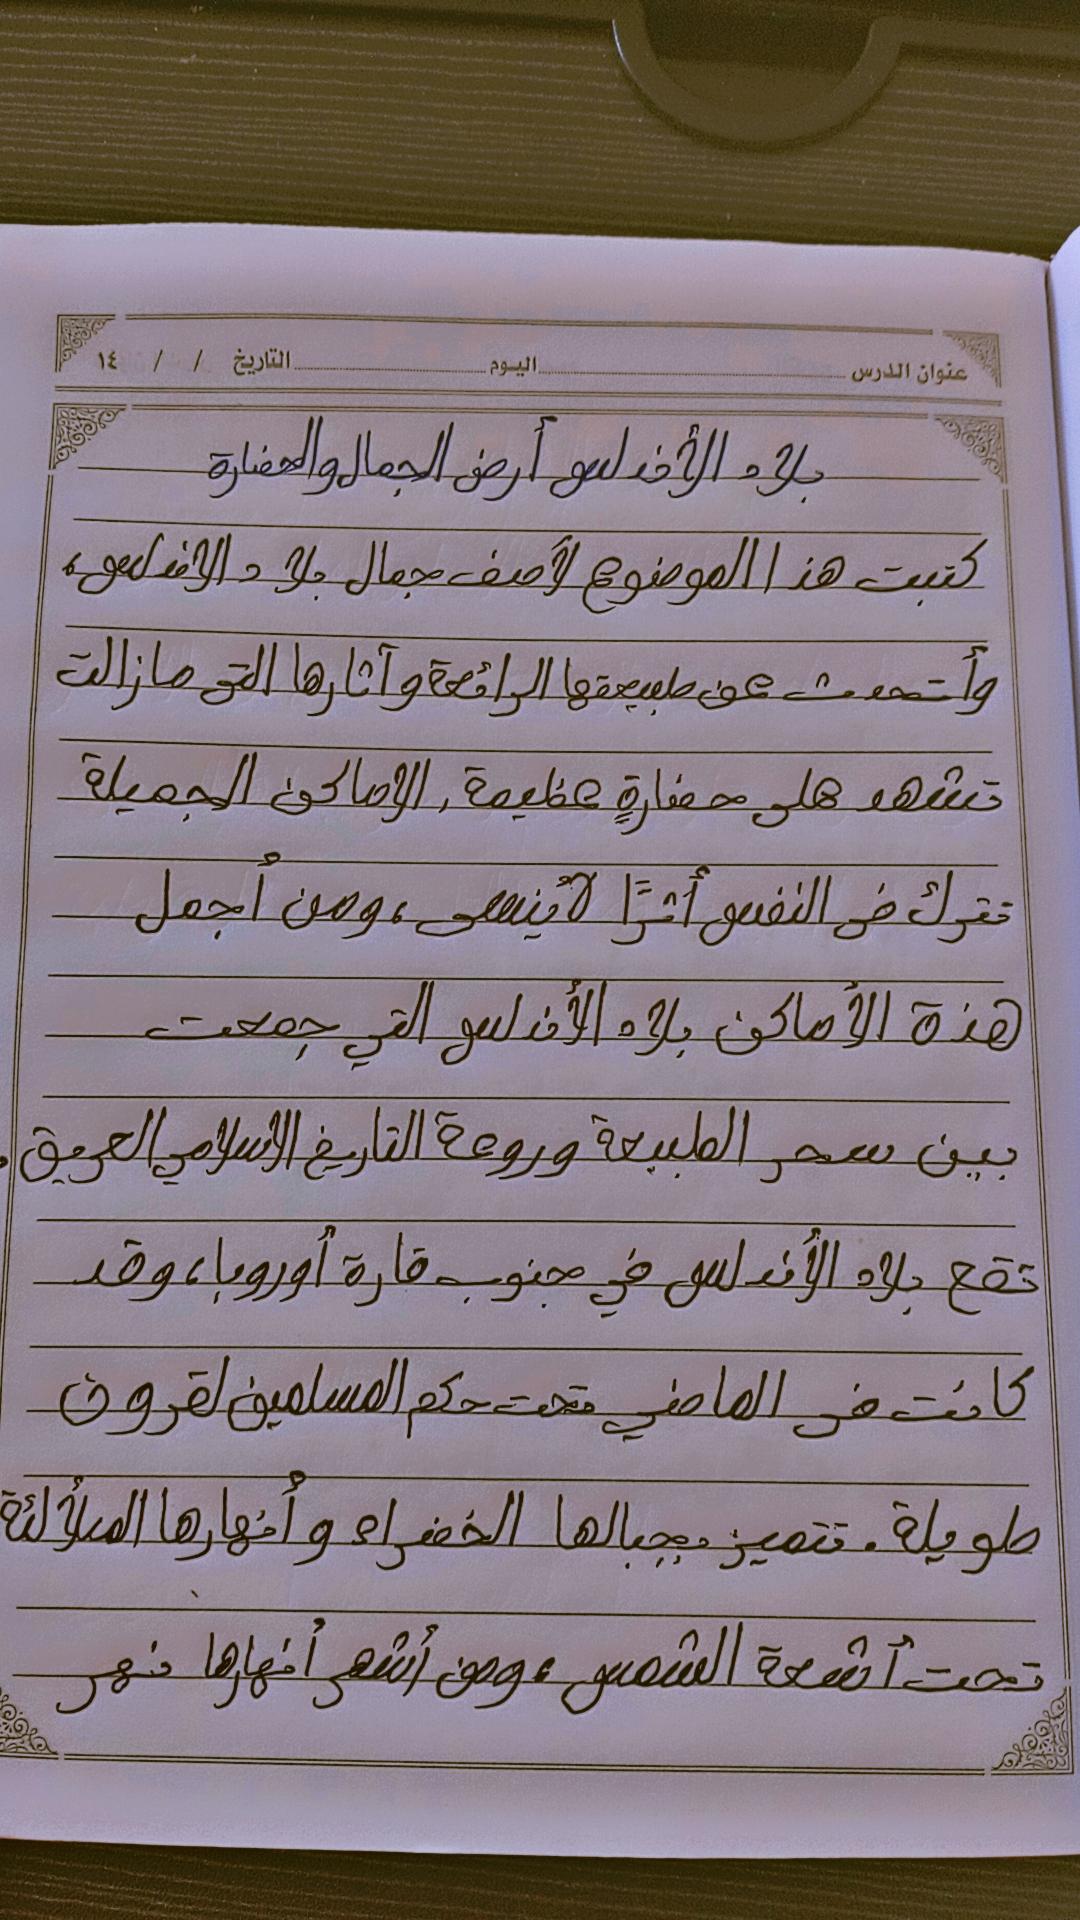 عنوان الدرس اليوم التاريخ / / ١٤
بلاد الأندلس أرض الجمال والحضارة
كتبت هذا الموضوع لأصف جمال بلاد الاندلس،
وأتحدث عن طبيعتها الرائعة وآثارها التى مازالت
تشهد على حضارةٍ عظيمة, الاماكن الجميلة
تترك فى النفس أثرًا لاينسى، ومن أجمل
هذة الأماكن بلاد الأندلس التي جمعت
بين سحر الطبيعة وروعة التاريخ الاسلامي العريق.
تقع بلاد الأندلس في جنوب قارة أوروبا، وقد
كانت فى الماضي تحت حكم المسلمين لقرون
طويلة. تتميز بجبالها الخضراء وأنهارها المتلألئة
تحت أشعة الشمس، ومن أشهر أنهارها نهر